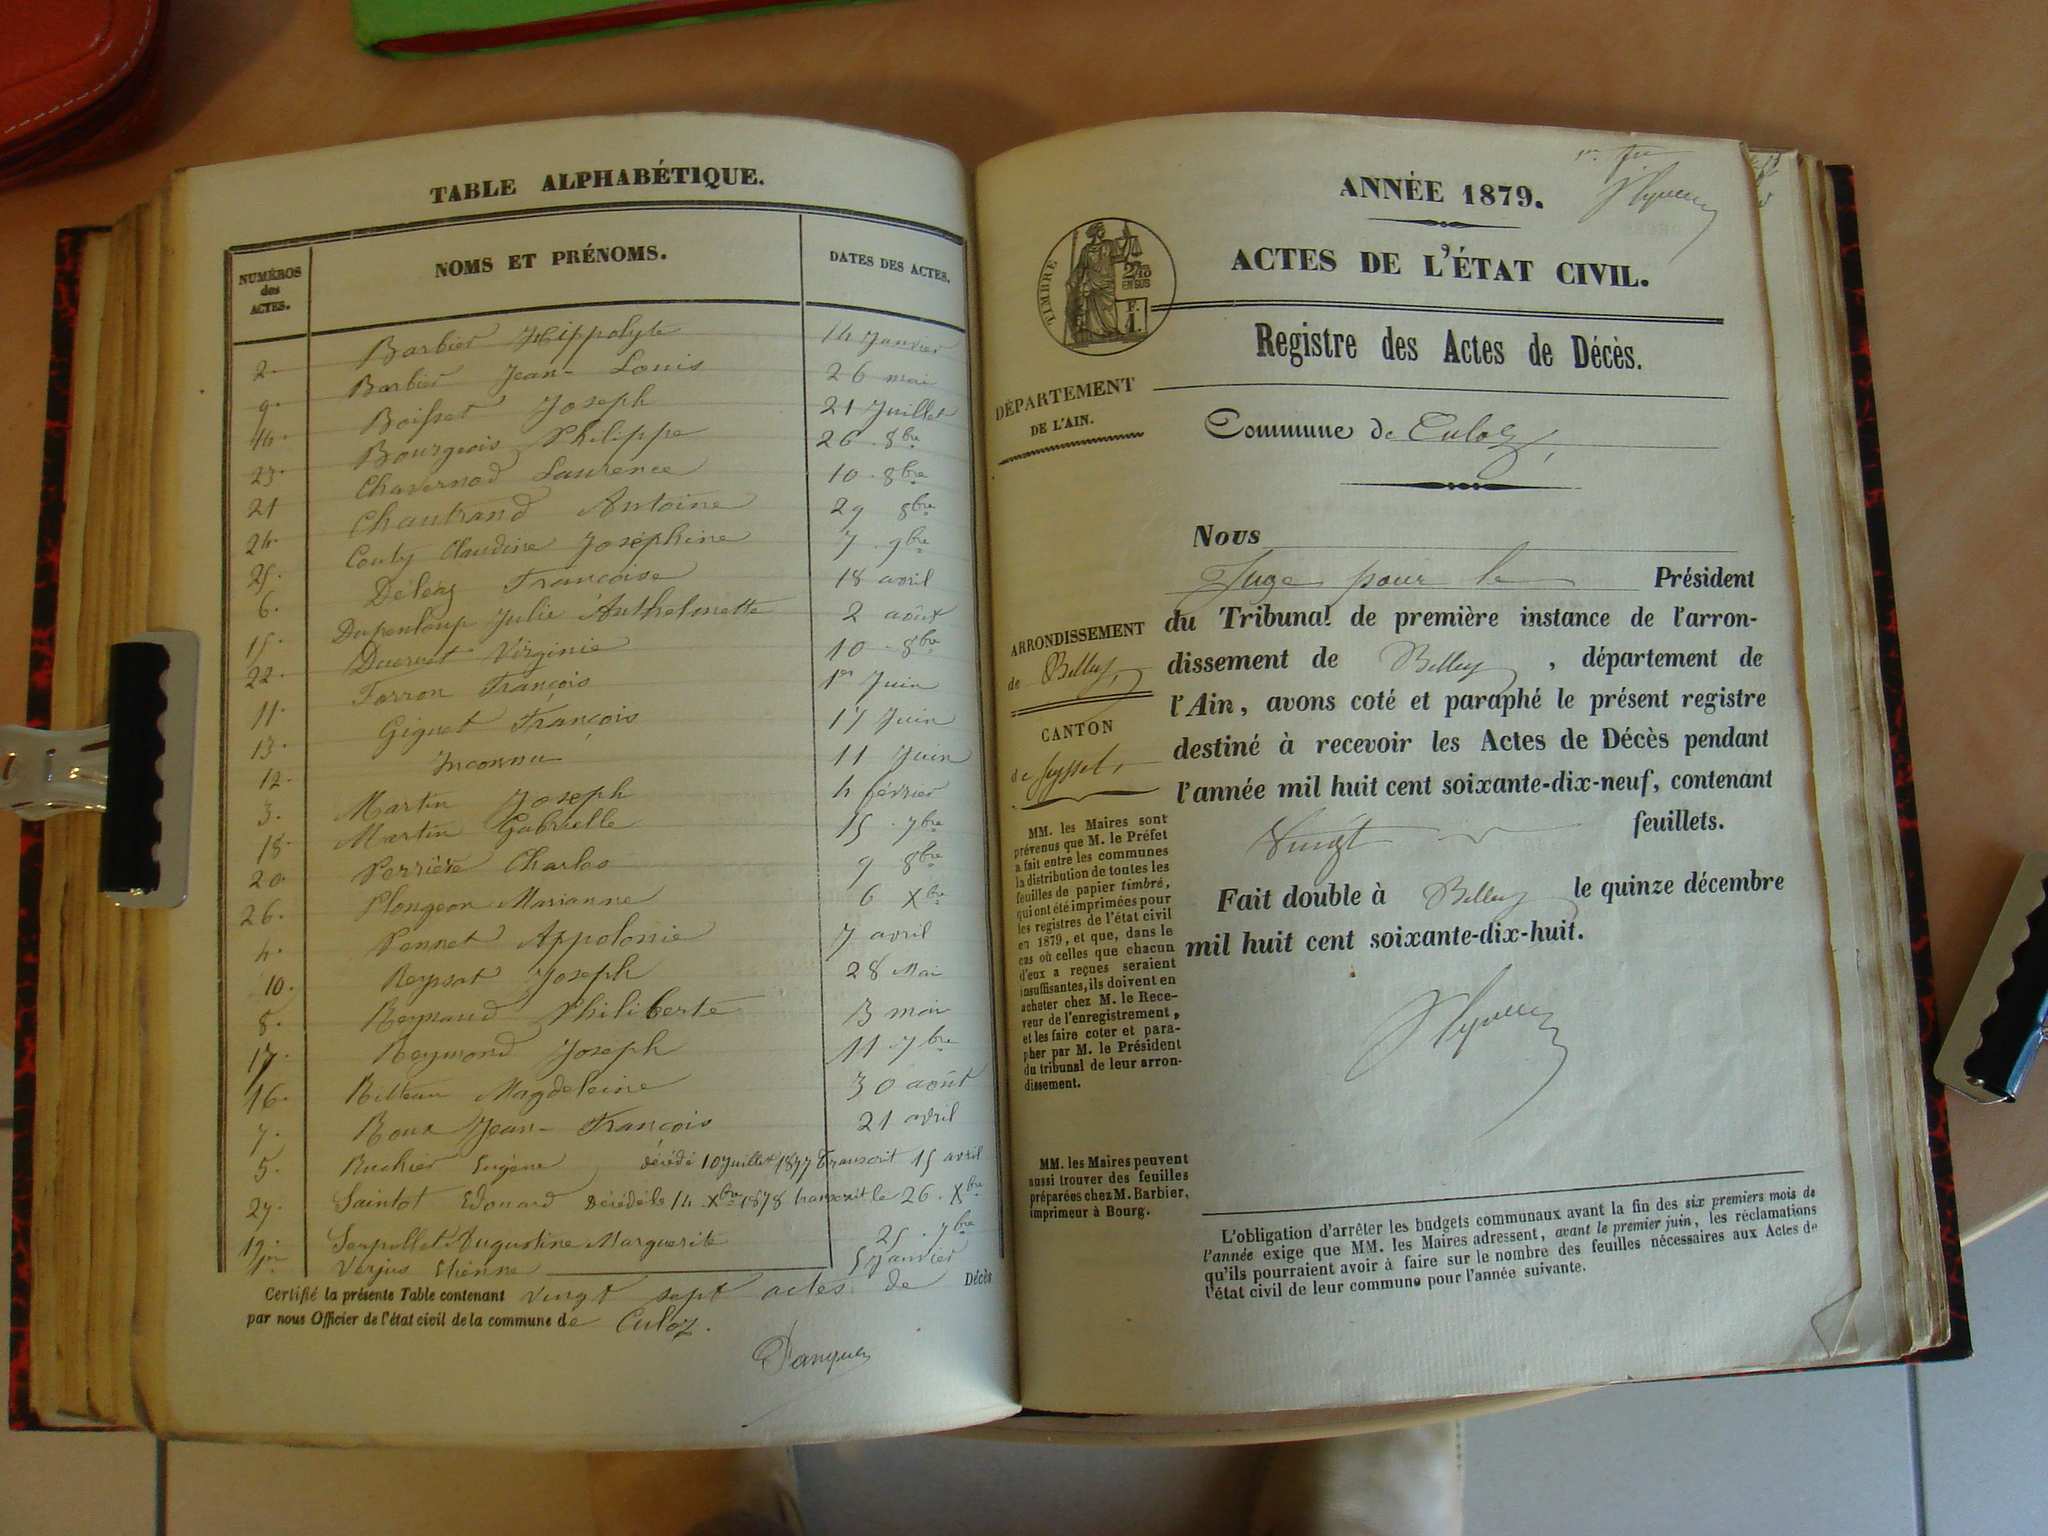 TABLE ALPHABÉTIQUE.
NUMÉROS des ACTES.
NOMS ET PRÉNOMS.
DATES DES ACTES.
2. Barbier Hippolyte 14 Janvier
9. Barbier Jean-Louis 26 mai
14. Boisset Joseph 21 Juillet
23. Bourgeois Philippe 26 8bre
21 Chavernod Laurence 10 8bre
24. Chautrand Antoine 29 8bre
25. Couty Claudine Josephine 7 9bre
6. Françoise 18 avril
15. Dupenloup Julie Anthelmette 2 août
22. Ducruet Virginie 10 8bre
11. Farron François 1er Juin
13. Giguet François 17 Juin
12. Inconnu 11 Juin
3. Martin Joseph 4 février
18. Martin Gabrielle 15 7bre
20 Perrière Charles 9 8bre
26. Plongeon Marianne 6 Xbre
4. Pennet Appolonie 7 avril
10. Reyssat Joseph 28 Mai
8. Reynaud Philiberte 3 mai
17. Reymond Joseph 11 7bre
16. Magdeleine 30 août
7. Roux Jean-François 21 avril
5. Ruchier Eugène décédé 10 Juillet 1877 Transcrit 15 avril
27. Saintot Edouard Décédé le 14 Xbre 1878 transcrit le 26 Xbre
19. Serpollet Augustine Marguerite 25 7bre
1er Verjus Etienne 5 Janvier
Certifié la présente Table contenant vingt sept actes de Décès
par nous Officier de l'état civil de la commune de Culoz.
ANNÉE 1879.
ACTES DE L'ÉTAT CIVIL.
TIMBRE
2/10 EN SUS
F. 1.
Registre des Actes de Décès.
DÉPARTEMENT
DE L'AIN.
Commune de Culoz,
Nous
Juge pour le Président
du Tribunal de première instance de l'arron-
dissement de Belley, département de
l'Ain, avons coté et paraphé le présent registre
destiné à recevoir les Actes de Décès pendant
l'année mil huit cent soixante-dix-neuf, contenant
Vingt feuillets.
Fait double à Belley le quinze décembre
mil huit cent soixante-dix-huit.
ARRONDISSEMENT
de Belley,
CANTON
de Seyssel,
MM. les Maires sont
prévenus que M. le Préfet
a fait entre les communes
la distribution de toutes les
feuilles de papier timbré,
qui ont été imprimées pour
les registres de l'état civil
en 1879, et que, dans le
cas où celles que chacun
d'eux a reçues seraient
insuffisantes, ils doivent en
acheter chez M. le Rece-
veur de l'enregistrement,
et les faire coter et para-
pher par M. le Président
du tribunal de leur arron-
dissement.
MM. les Maires peuvent
aussi trouver des feuilles
préparées chez M. Barbier,
imprimeur à Bourg.
L'obligation d'arrêter les budgets communaux avant la fin des six premiers mois de
l'année exige que MM. les Maires adressent, avant le premier juin, les réclamations
qu'ils pourraient avoir à faire sur le nombre des feuilles nécessaires aux Actes de
l'état civil de leur commune pour l'année suivante.